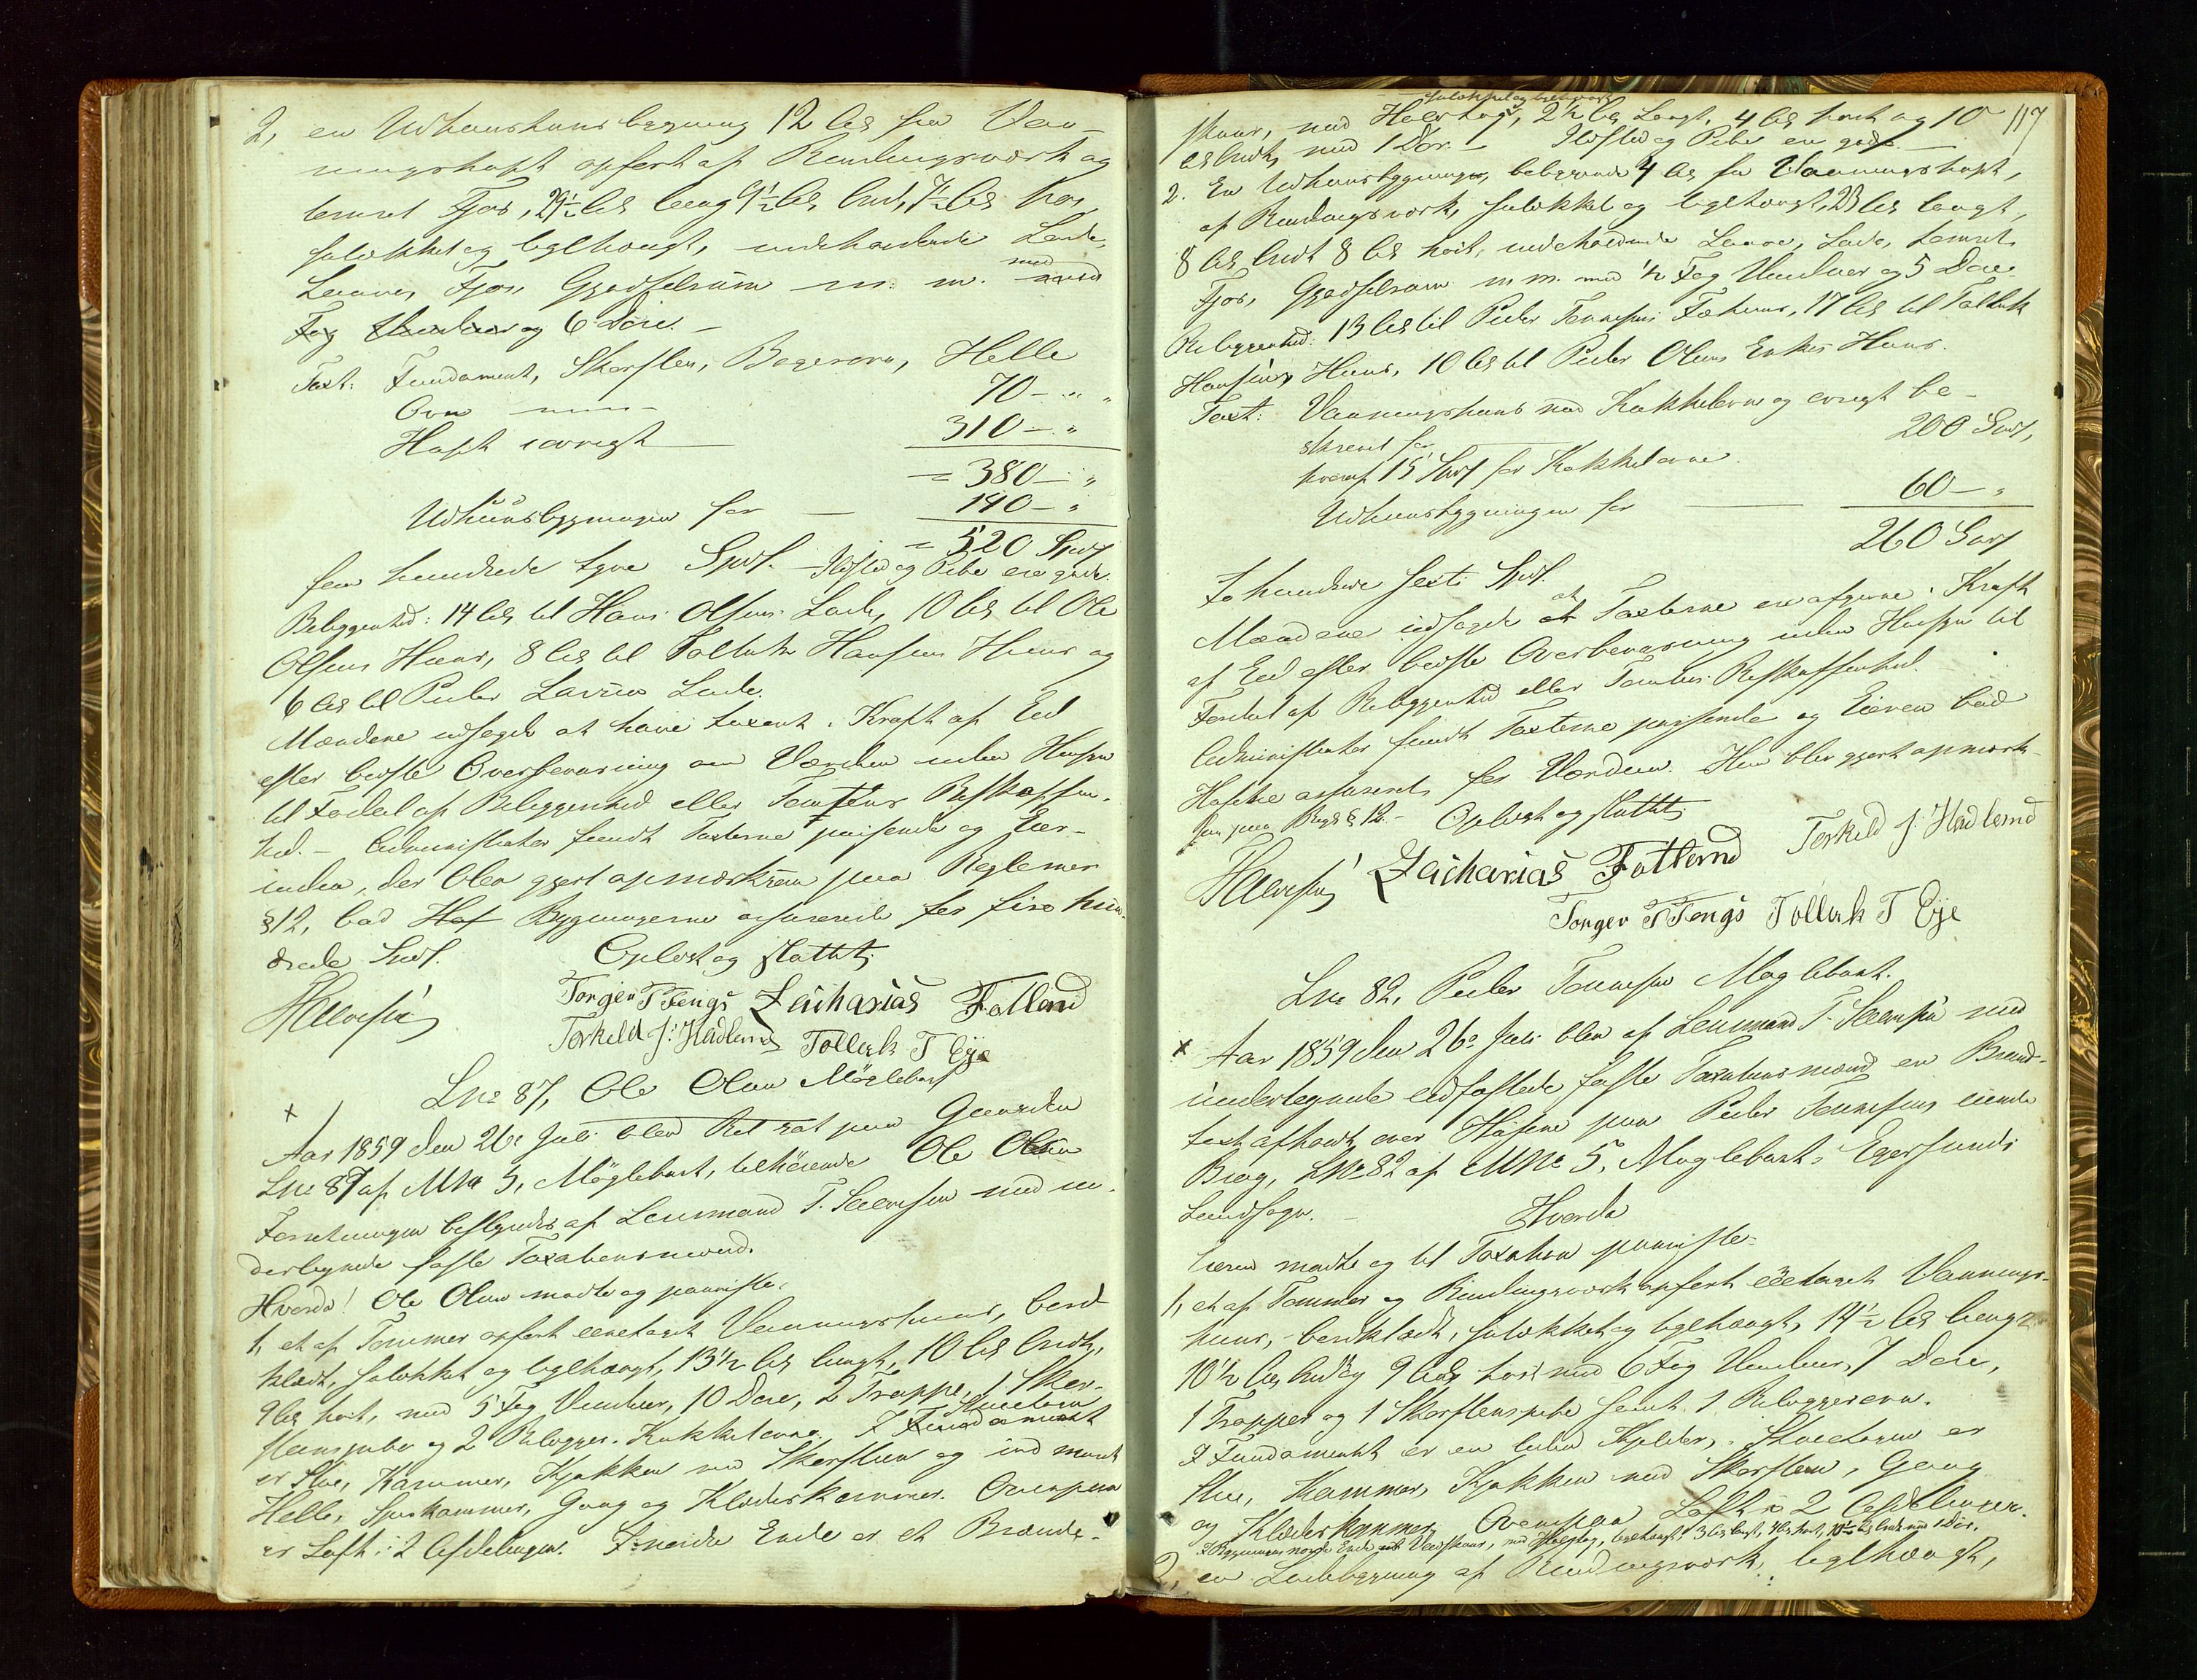 2, en Udhuusbygning 12 Al fra Vaa-
ningshuset opført af Bindingsværk og
tømret Fjøs, 29½ Al lang 9½ Al bred, 7½ Al høi
sulekket og teglhængt, indeholdende Lade,
Laave, Fjøs, Gjødselrum m. m. med
Fag Vinduer og 6 Døre. –
Taxt: Fundament, Skorsten, Bagerovn, Helle
Ovn 70 – " "
Huset iøvrigt 310 – "
= 380 – "
Udhuusbygningen for — 140 – "
= 520 Spd
fem hundrede tyve Spd. – Ildsted og Pibe ere gode.
Beliggenhed: 14 Al til Hans Olsens Lade, 10 Al til Ole
Olsens Huus, 8 Al til Tollak Hansens Huus og
6 Al til Peder Lade.
Mændene udsagde at have taxeret i Kraft af Eed
efter bedste Overbeviisning om Værdien uden Hensyn
til Fordeel af Beliggenhed eller Tomtens Beskaffen-
hed. – Administrator fandt Taxterne passende og Eier-
inden, der blev gjort opmærksom paa Reglement
§12, bad Bygningerne assurerede for fire hun-
drede Spd. Oplæst og sluttet
Torger T Tengs Zacharias Fotland
Torkeld J: Hadland Tollak T Eje
Lno 87, Ole Olsen Møglebust
x Aar 1859 den 26e Juli blev Ret sat paa Gaarden
Lno 87 af MNo 5, Møglebust, tilhørende Ole Olsen
Forretningen bestyredes af Lensmand T. med un-
dertegnede faste Taxationsmænd.
Hvorda! Ole Olsen mødte og paaviste.
1, et af Tømmer opført eenetages Vaaningshuus, bord-
klædt, sulekket og teglhængt, 13½ Al langt, 10 Al bredt,
9 Al høit, med 5 Fag Vinduer, 10 Døre, 2 Trapper, 1 Skor-
steenspibe og 2 Bilægger-Kakkelovne. I Stueetagen
er Stue, Kammer, Kjøkken med Skorsteen og indmuret
Helle, Spiskammer, Gang og Klædeskammer. Ovenpaa
er Loft i 2 Afdelinger. I nordre Ende er et Brænde-
117
sulekket og
skuur, med Halvtag, 2½ Al langt, 4 Al høit og 10
Al bredt, med 1 Dør. – Ildsted og Pibe ere gode –
2. En Udhuusbygning, beliggende 4 Al fra Vaaningshuset,
af Bindingsværk, sulekket og teglhængt, 23 Al langt,
8 Al bredt 8 Al høit, indeholdende Laave, Lade, tømret
Fjøs, Gjødselrum m. m. med ½ Fag Vinduer og 5 Døre.
Beliggenhed: 13 Al til Peder Tønnesens Fæhuus, 17 Al til Tollak
Hansens Huus, 10 Al til Peder Olsens Enkes Huus.
Taxt: Vaaningshuus med Kakkelovne og øvrigt be-
skrevet for 200 Spd,
hvoraf 15 Spd for Kakkelovne.
Udhuusbygningen for — 60 – "
260 Spd
to hundrede sexti Spd.
Mændene udsagde at Taxterne ere afgivne i Kraft
af Eed efter bedste Overbeviisning uden Hensyn til
Fordeel af Beliggenhed eller Tomtens Beskaffenhed.
Administrator fandt Taxterne passende og Eieren bad
Husene assurerede for Værdien. Han blev gjort opmærk-
som paa Regl § 12. – Oplæst og sluttet
Zacharias Fotland Torkeld J: Hadland
Torger T Tengs Tollak T Eje
Lno 82, Peder Tønnesen Møglebust.
x Aar 1859 den 26e Juli blev af Lensmand T. med
undertegnede edfæstede faste Taxationsmænd en Brand-
taxt afholdt over Husene paa Peder Tønnesens eiende
Brug, LNo 82 af MNo 5, Møglebust, Egersunds
Landsogn. –
Hvorda
Eieren mødte og til Taxation paaviste:
1, et af Tømmer og Bindingsværk opført eenetages Vaanings-
huus, bordklædt, sulekket og teglhængt, 14½ Al langt
10½ Al bredt og 9 Al høit med 6 Fag Vinduer, 7 Døre,
1 Trappe og 1 Skorsteenspibe samt 1 Bilæggerovn.
I Fundamentet er en liden Kjelder, i Stueetagen er
Stue, Kammer, Kjøkken med Skorsteen, Gang
og Klædeskammer, Ovenpaa Loft i 2 Afdelinger.
I Bygningens nordre Ende et Vedskuur, med Halvtag, teglhængt, 3 Al langt, 4 Al høit, 10½ Al bredt med 1 Dør.
2, en Ladebygning af Bindingsværk, teglhængt,